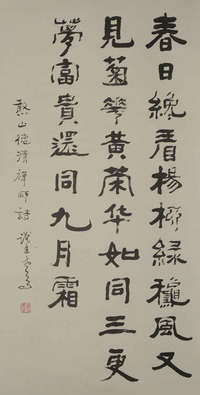 春日纔看楊柳緑龝風又
見菊華黃榮华如同三更
夢富貴還同九月霜
憨山德清禪師詩